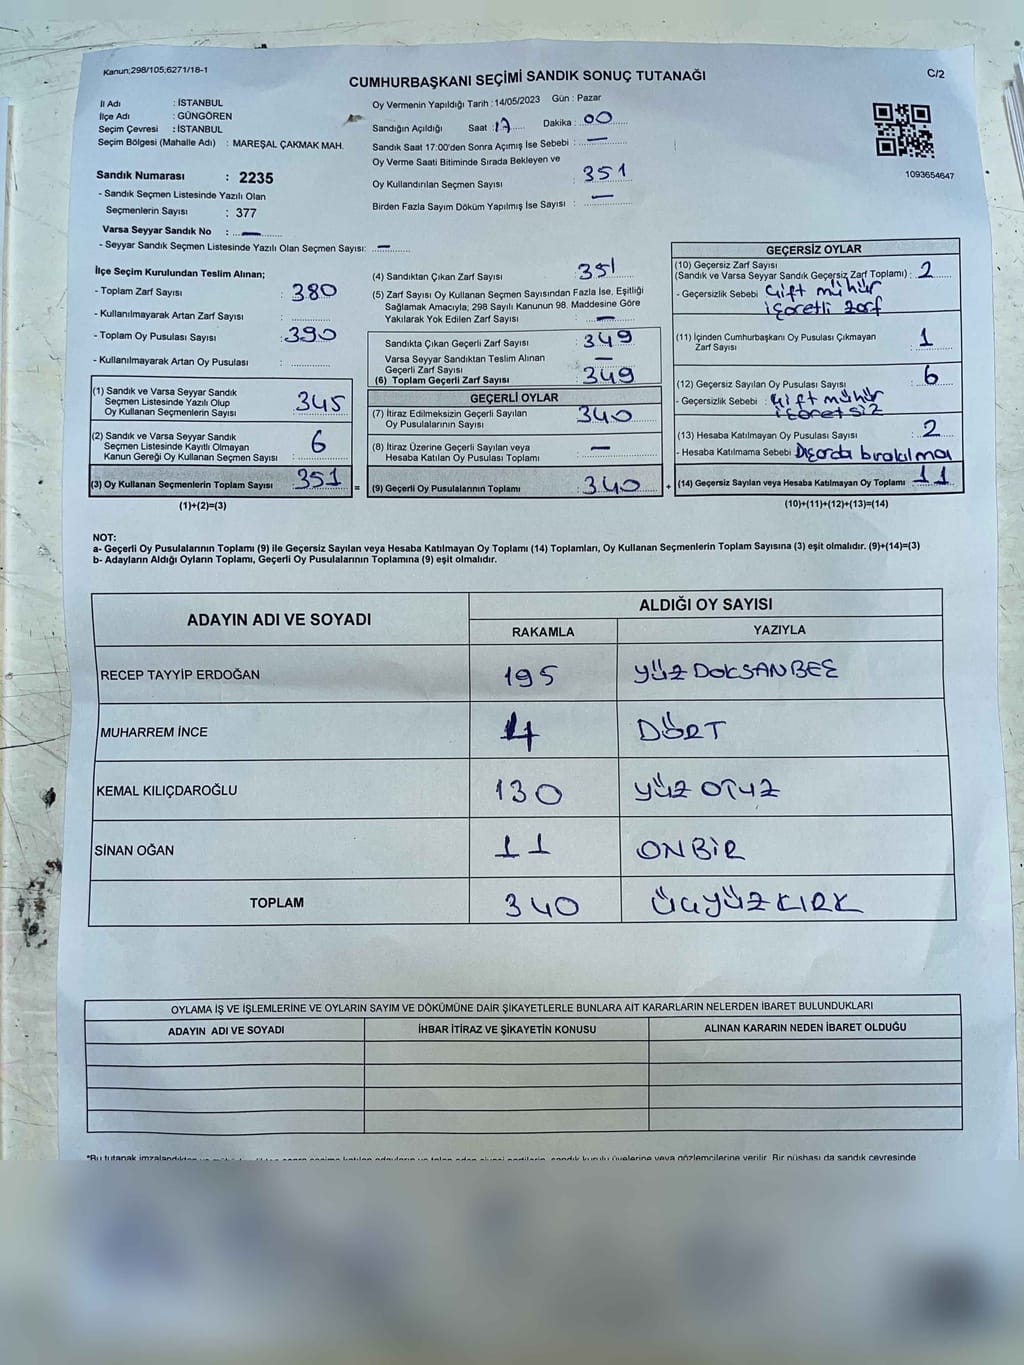 Kanun;298/105;6271/18-1
CUMHURBAŞKANI SEÇİMİ SANDIK SONUÇ TUTANAĞI
C/2
İl Adı : İSTANBUL
İlçe Adı : GÜNGÖREN
Seçim Çevresi : İSTANBUL
Seçim Bölgesi (Mahalle Adı) : MAREŞAL ÇAKMAK MAH.
Sandık Numarası : 2235
- Sandık Seçmen Listesinde Yazılı Olan
Seçmenlerin Sayısı : 377
Varsa Seyyar Sandık No : —
- Seyyar Sandık Seçmen Listesinde Yazılı Olan Seçmen Sayısı: —
Oy Vermenin Yapıldığı Tarih :14/05/2023 Gün : Pazar
Sandığın Açıldığı Saat : 17 Dakika : 00
Sandık Saat 17:00'den Sonra Açımış İse Sebebi : —
Oy Verme Saati Bitiminde Sırada Bekleyen ve
Oy Kullandırılan Seçmen Sayısı : 351
Birden Fazla Sayım Döküm Yapılmış İse Sayısı : —
1093654647
İlçe Seçim Kurulundan Teslim Alınan;
- Toplam Zarf Sayısı : 380
- Kullanılmayarak Artan Zarf Sayısı :
- Toplam Oy Pusulası Sayısı : 390
- Kullanılmayarak Artan Oy Pusulası :
(1) Sandık ve Varsa Seyyar Sandık
Seçmen Listesinde Yazılı Olup
Oy Kullanan Seçmenlerin Sayısı : 345
(2) Sandık ve Varsa Seyyar Sandık
Seçmen Listesinde Kayıtlı Olmayan
Kanun Gereği Oy Kullanan Seçmen Sayısı : 6
(3) Oy Kullanan Seçmenlerin Toplam Sayısı : 351
(1)+(2)=(3)
(4) Sandıktan Çıkan Zarf Sayısı : 351
(5) Zarf Sayısı Oy Kullanan Seçmen Sayısından Fazla İse, Eşitliği
Sağlamak Amacıyla, 298 Sayılı Kanunun 98. Maddesine Göre
Yakılarak Yok Edilen Zarf Sayısı : —
Sandıkta Çıkan Geçerli Zarf Sayısı : 349
Varsa Seyyar Sandıktan Teslim Alınan
Geçerli Zarf Sayısı : —
(6) Toplam Geçerli Zarf Sayısı : 349
GEÇERLİ OYLAR
(7) İtiraz Edilmeksizin Geçerli Sayılan
Oy Pusulalarının Sayısı : 340
(8) İtiraz Üzerine Geçerli Sayılan veya
Hesaba Katılan Oy Pusulası Toplamı : —
= (9) Geçerli Oy Pusulalarının Toplamı : 340 +
GEÇERSİZ OYLAR
(10) Geçersiz Zarf Sayısı
(Sandık ve Varsa Seyyar Sandık Geçersiz Zarf Toplamı) : 2
- Geçersizlik Sebebi : Çift mühür
işaretli zarf
(11) İçinden Cumhurbaşkanı Oy Pusulası Çıkmayan
Zarf Sayısı : 1
(12) Geçersiz Sayılan Oy Pusulası Sayısı : 6
- Geçersizlik Sebebi : Çift mühür
işaretsiz
(13) Hesaba Katılmayan Oy Pusulası Sayısı : 2
- Hesaba Katılmama Sebebi Dışarda bırakılmaı
(14) Geçersiz Sayılan veya Hesaba Katılmayan Oy Toplamı : 11
(10)+(11)+(12)+(13)=(14)
NOT:
a- Geçerli Oy Pusulalarının Toplamı (9) ile Geçersiz Sayılan veya Hesaba Katılmayan Oy Toplamı (14) Toplamları, Oy Kullanan Seçmenlerin Toplam Sayısına (3) eşit olmalıdır. (9)+(14)=(3)
b- Adayların Aldığı Oyların Toplamı, Geçerli Oy Pusulalarının Toplamına (9) eşit olmalıdır.
ADAYIN ADI VE SOYADI
ALDIĞI OY SAYISI
RAKAMLA YAZIYLA
RECEP TAYYİP ERDOĞAN 195 YÜZ DOKSAN BEŞ
MUHARREM İNCE 4 DÖRT
KEMAL KILIÇDAROĞLU 130 YÜZ OTUZ
SİNAN OĞAN 11 ONBİR
TOPLAM 340 ÜÇYÜZ KIRK
OYLAMA İŞ VE İŞLEMLERİNE VE OYLARIN SAYIM VE DÖKÜMÜNE DAİR ŞİKAYETLERLE BUNLARA AİT KARARLARIN NELERDEN İBARET BULUNDUKLARI
ADAYIN ADI VE SOYADI İHBAR İTİRAZ VE ŞİKAYETİN KONUSU ALINAN KARARIN NEDEN İBARET OLDUĞU
*Bu tutanak veya gözlemcilerine verilir. Bir nüshası da sandık çevresinde